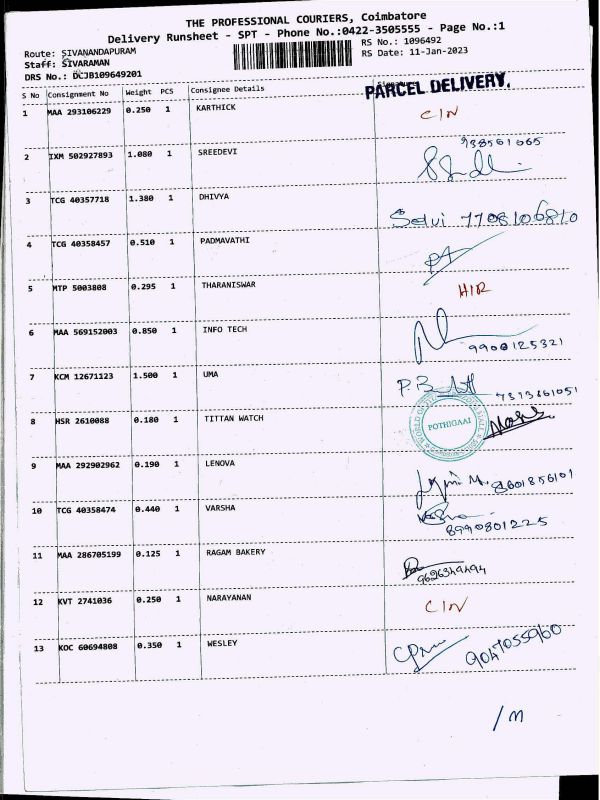 THE PROFESSIONAL COURIERS, Coimbatore
Delivery Runsheet - SPT - Phone No.:0422-3505555 - Page No.:1
Route: SIVANANDAPURAM
RS No.: 1096492
Staff: SIVARAMAN
RS Date: 11-Jan-2023
DRS No.: DCJB109649201
PARCEL DELIVERY.
S No Consignment No Weight PCS Consignee Details
1 MAA 293106229 0.250 1 KARTHICK CIN
2 IXM 502927893 1.080 1 SREEDEVI
3 TCG 40357718 1.380 1 DHIVYA Selvi 7708106810
4 TCG 40358457 0.510 1 PADMAVATHI
5 MTP 5003808 0.295 1 THARANISWAR HIR
6 MAA 569152003 0.850 1 INFO TECH 9900125321
7 KCM 12671123 1.500 1 UMA 7373861051
8 HSR 2610088 0.180 1 TITTAN WATCH POTHIGAAI
9 MAA 292902962 0.190 1 LENOVA 8601856101
10 TCG 40358474 0.440 1 VARSHA 8990801225
11 MAA 286705199 0.125 1 RAGAM BAKERY 9626349494
12 KVT 2741036 0.250 1 NARAYANAN CIN
13 KOC 60694808 0.350 1 WESLEY 9047055960